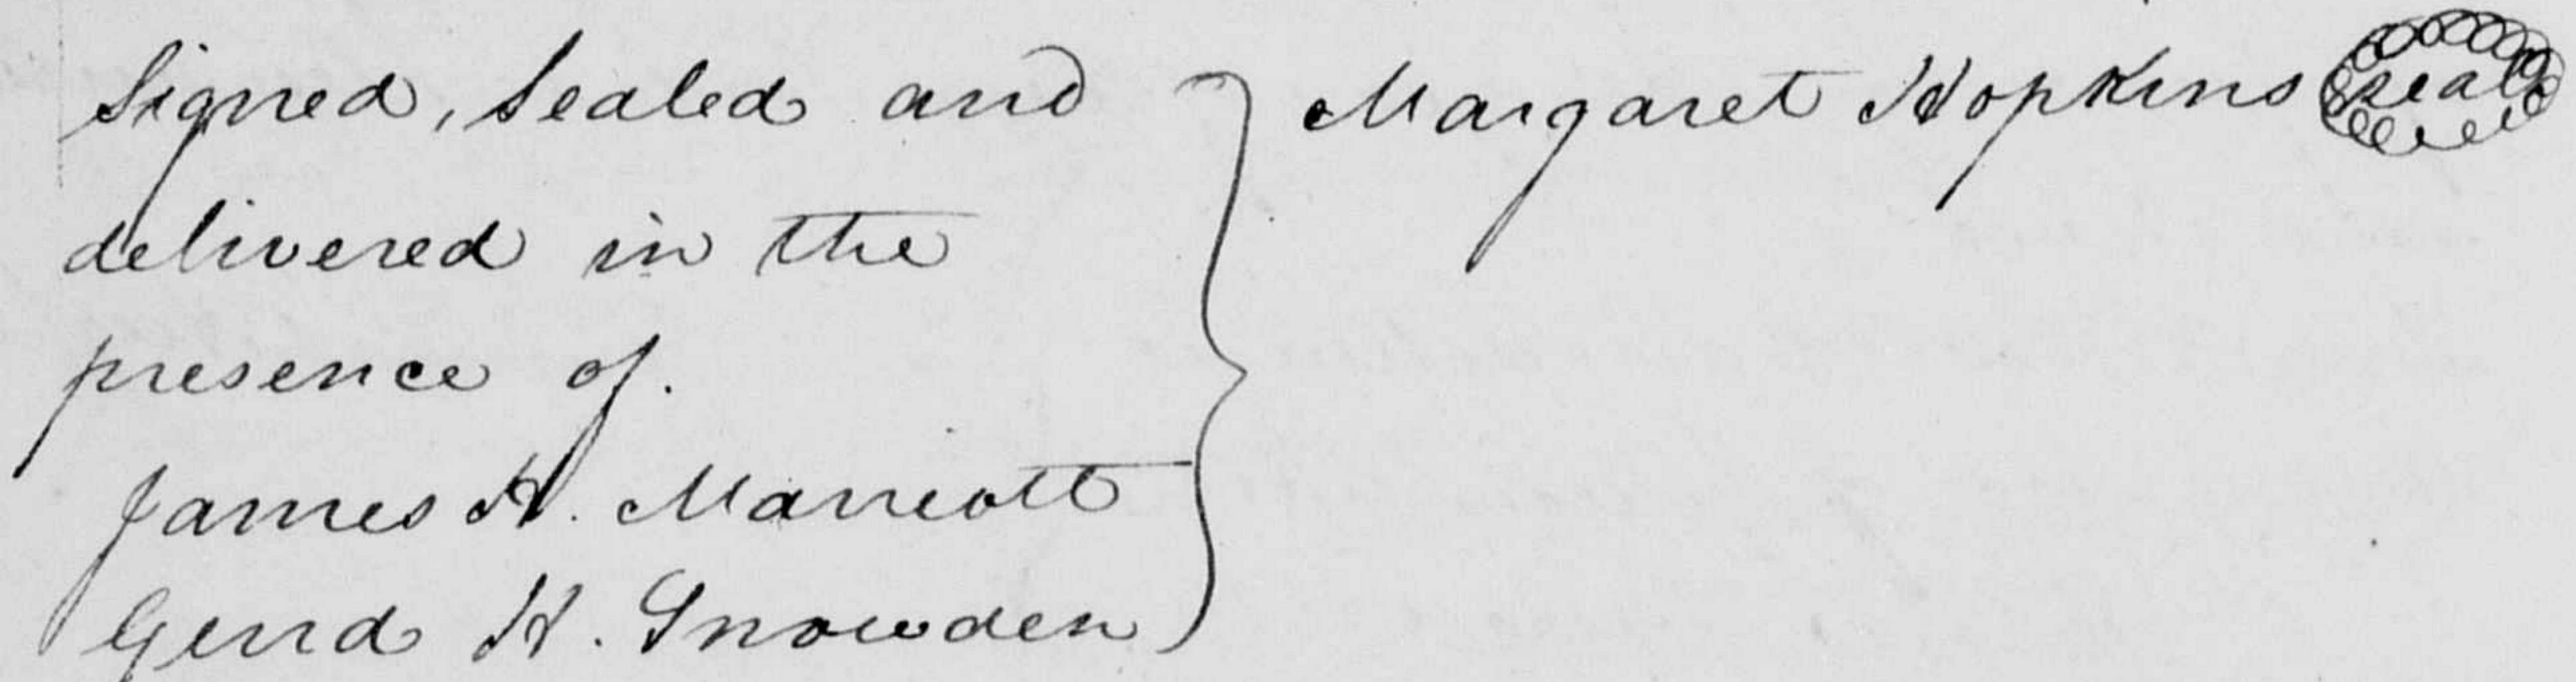 Signed, Sealed and
delivered in the
presence of.
James H. Marriott
Gerrd H. Snowden
Margaret Hopkins seal